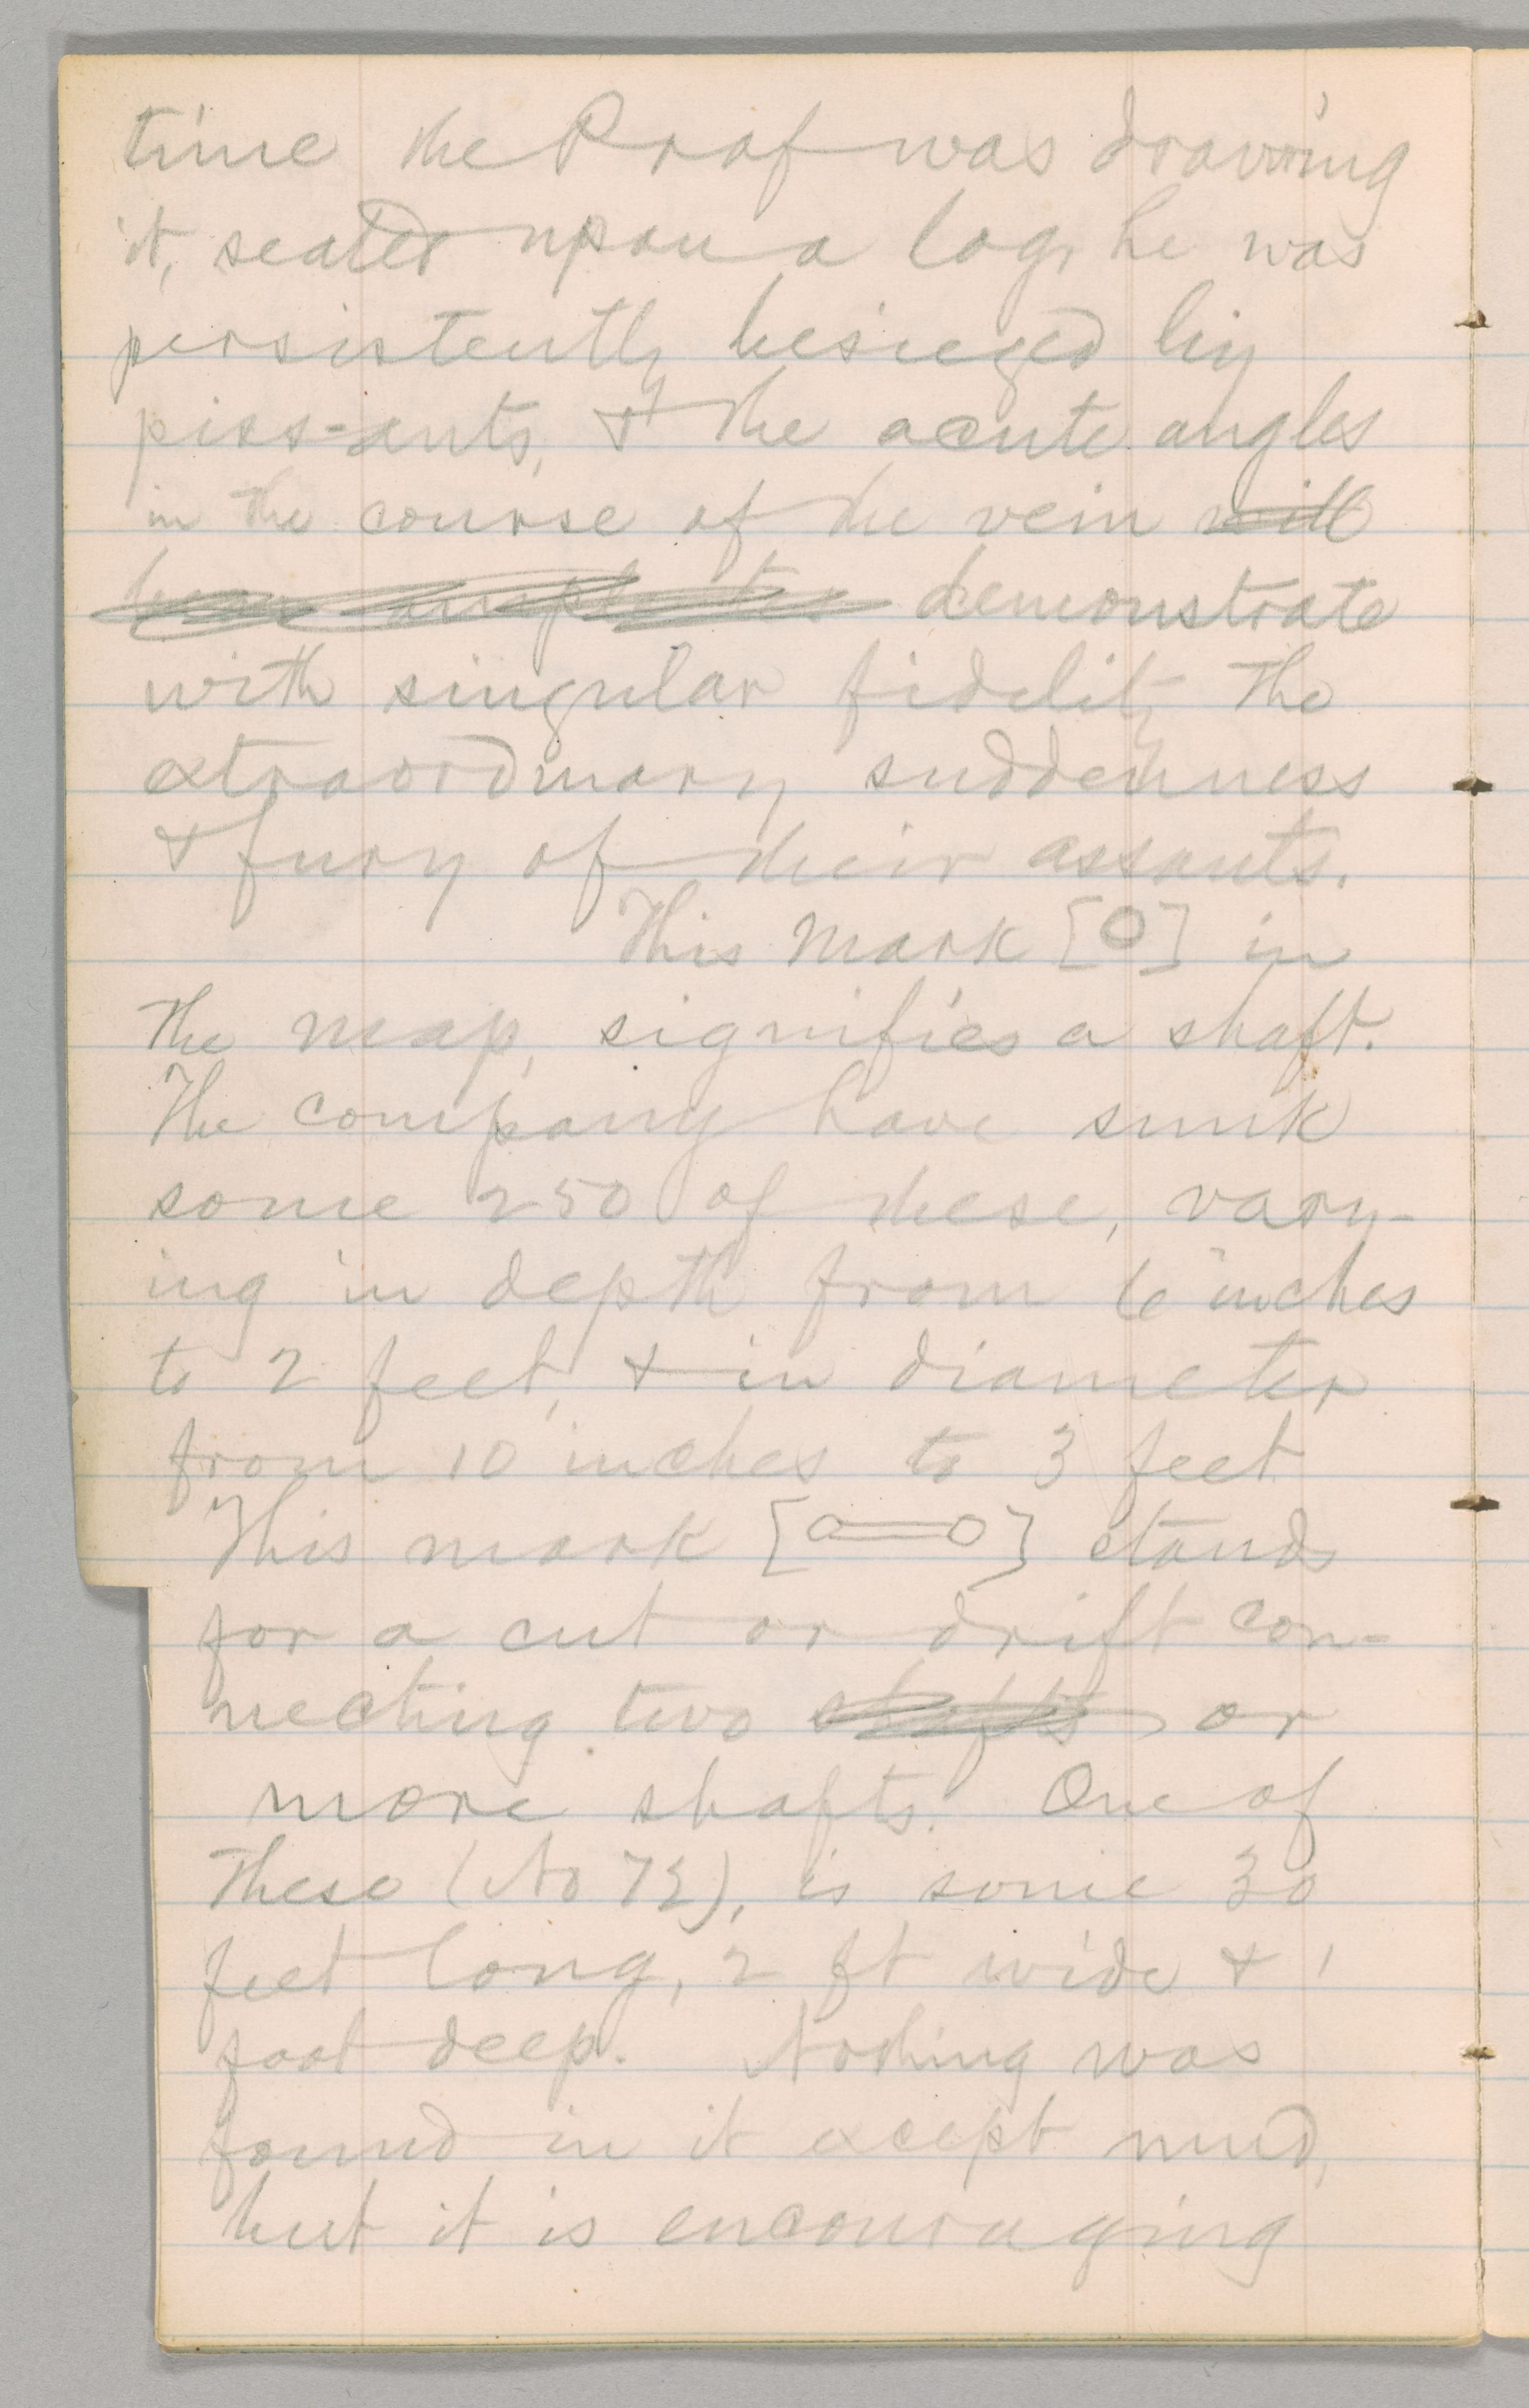 time the Prof was drawing
it, seated upon a log, he was
persistently besieged by
piss-ants, & the acute angles
in the course of the vein will
demonstrate
with singular fidelity the
extraordinary suddenness
& fury of their assauts.
This mark [O] in
the map, signifies a shaft.
The company have sunk
some 250 of these, vary-
ing in depth from 6 inches
to 2 feet, & in diameter
from 10 inches to 3 feet
This mark [o=o] stands
for a cut or drift con-
necting two shafts or
more shafts. One of
these (No 73), is some 30
feet long, 2 ft wide & 1
foot deep. Nothing was
found in it except mud,
but it is encouraging